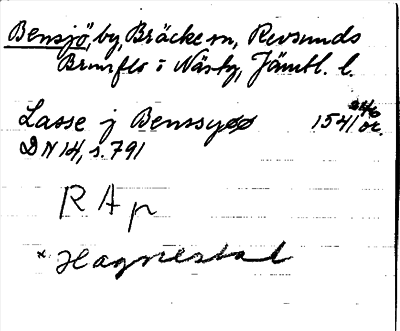 Bensjö, by, Bräcke sn, Revsunds
Brunflo i Näsby, Jämtl. l.
Lasse j Benssyøø 1541 or.
DN 14, s. 791
R A p
× Hagnestad